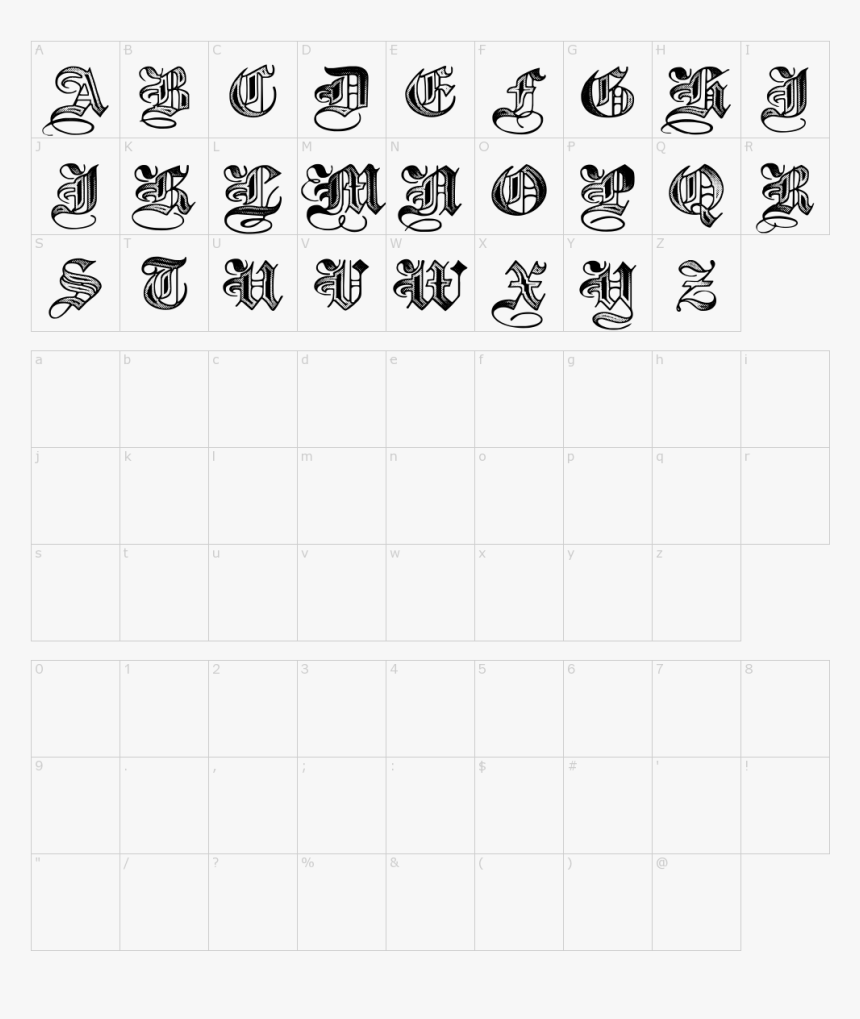 A B C D E F G H I
A B C D E F G H I
J K L M N O P Q R
J K L M N O P Q R
S T U V W X Y Z
S T U V W X Y Z
a b c d e f g h i
j k l m n o p q r
s t u v w x y z
0 1 2 3 4 5 6 7 8
9 . , ; : $ # ' !
" / ? % & ( ) @